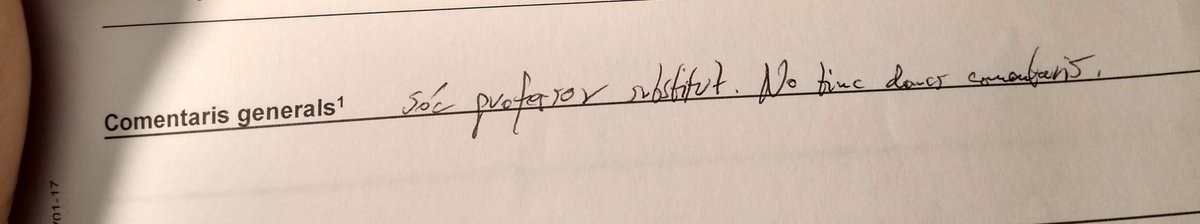 Comentaris generals¹ Sóc professor substitut. No tinc doncs comentaris.
/01-17